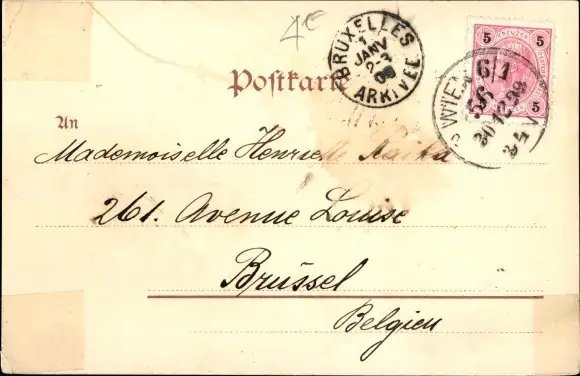 4€
BRUXELLES
1
JANV
2-3
00
ARRIVEE
5 KREUZER 5
5
WIEN 6/1
56
30.12.99
Postkarte
An
Mademoiselle Henriette
261. Avenue Louise
Brüssel
Belgien